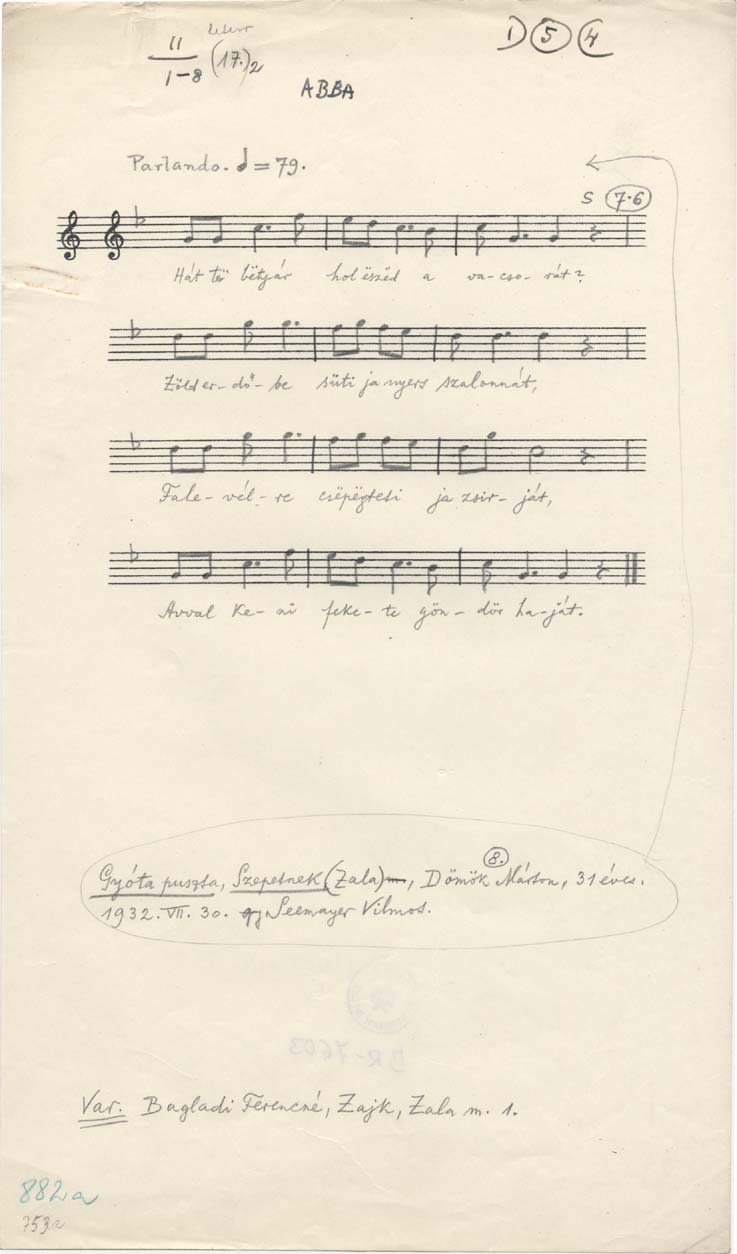 II
1-8 (17.)2
D 5 4
ABBA
Parlando. = 79.
S 7·6
Hát të bëtyár hol ëszëd a va-cso-rát?
Zöld er-dő-be süti ja nyers szalonnát,
Fale-vél-re csëpëgteti ja zsir-ját,
Avval ke-ni feke-te gön-dör ha-ját.
8.
Gyóta puszta, Szepetnek (Zala), Dömök Márton, 31 éves.
1932. VII. 30. gy. Seemayer Vilmos.
BR-7603
Var. Bagladi Ferencné, Zajk, Zala m. 1.
882a
753a